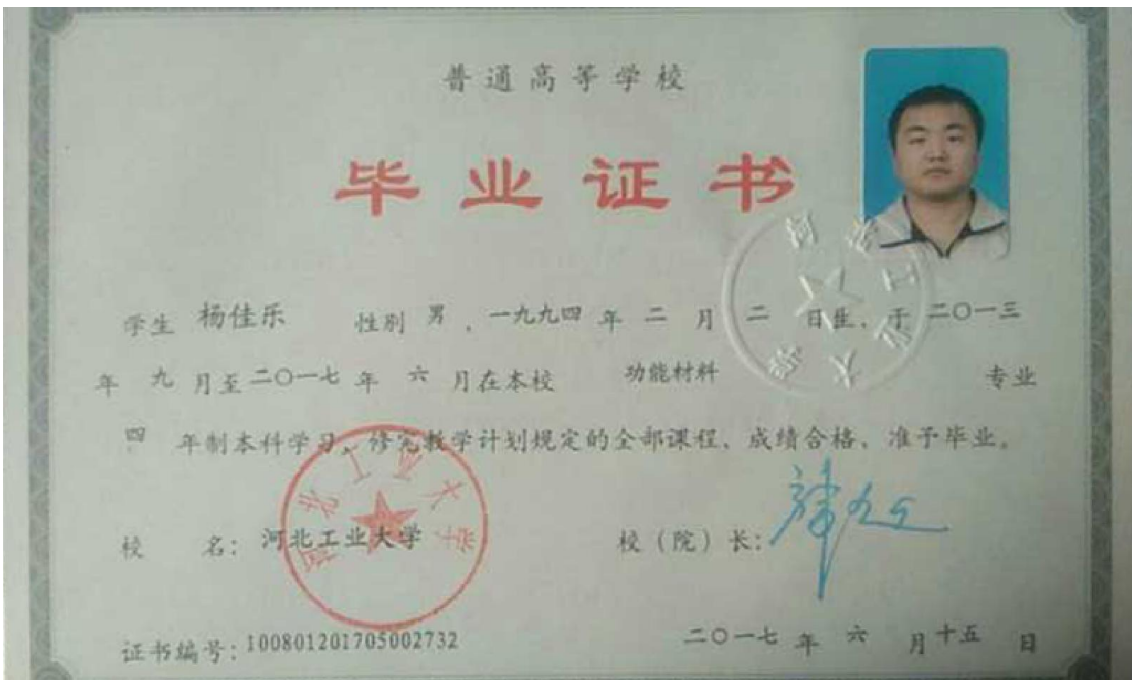 普通高等学校
毕业证书
学生 杨佳乐 性别 男，一九九四 年 二 月 二 日生，于 二〇一三
年 九 月至 二〇一七 年 六 月在本校 功能材料 专业
四 年制本科学习，修完教学计划规定的全部课程，成绩合格，准予毕业。
校 名：河北工业大学 校（院）长：
河北工业大学
证书编号：100801201705002732 二〇一七 年 六 月 十五 日